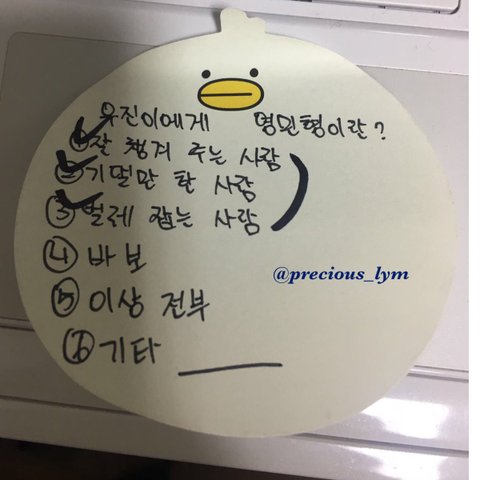 유진이에게 명민형이란?
① 잘 챙겨 주는 사람
② 기댈만 한 사람
③ 벌레 잡는 사람
④ 바보
⑤ 이상 전부
⑥ 기타 ______
@precious_lym